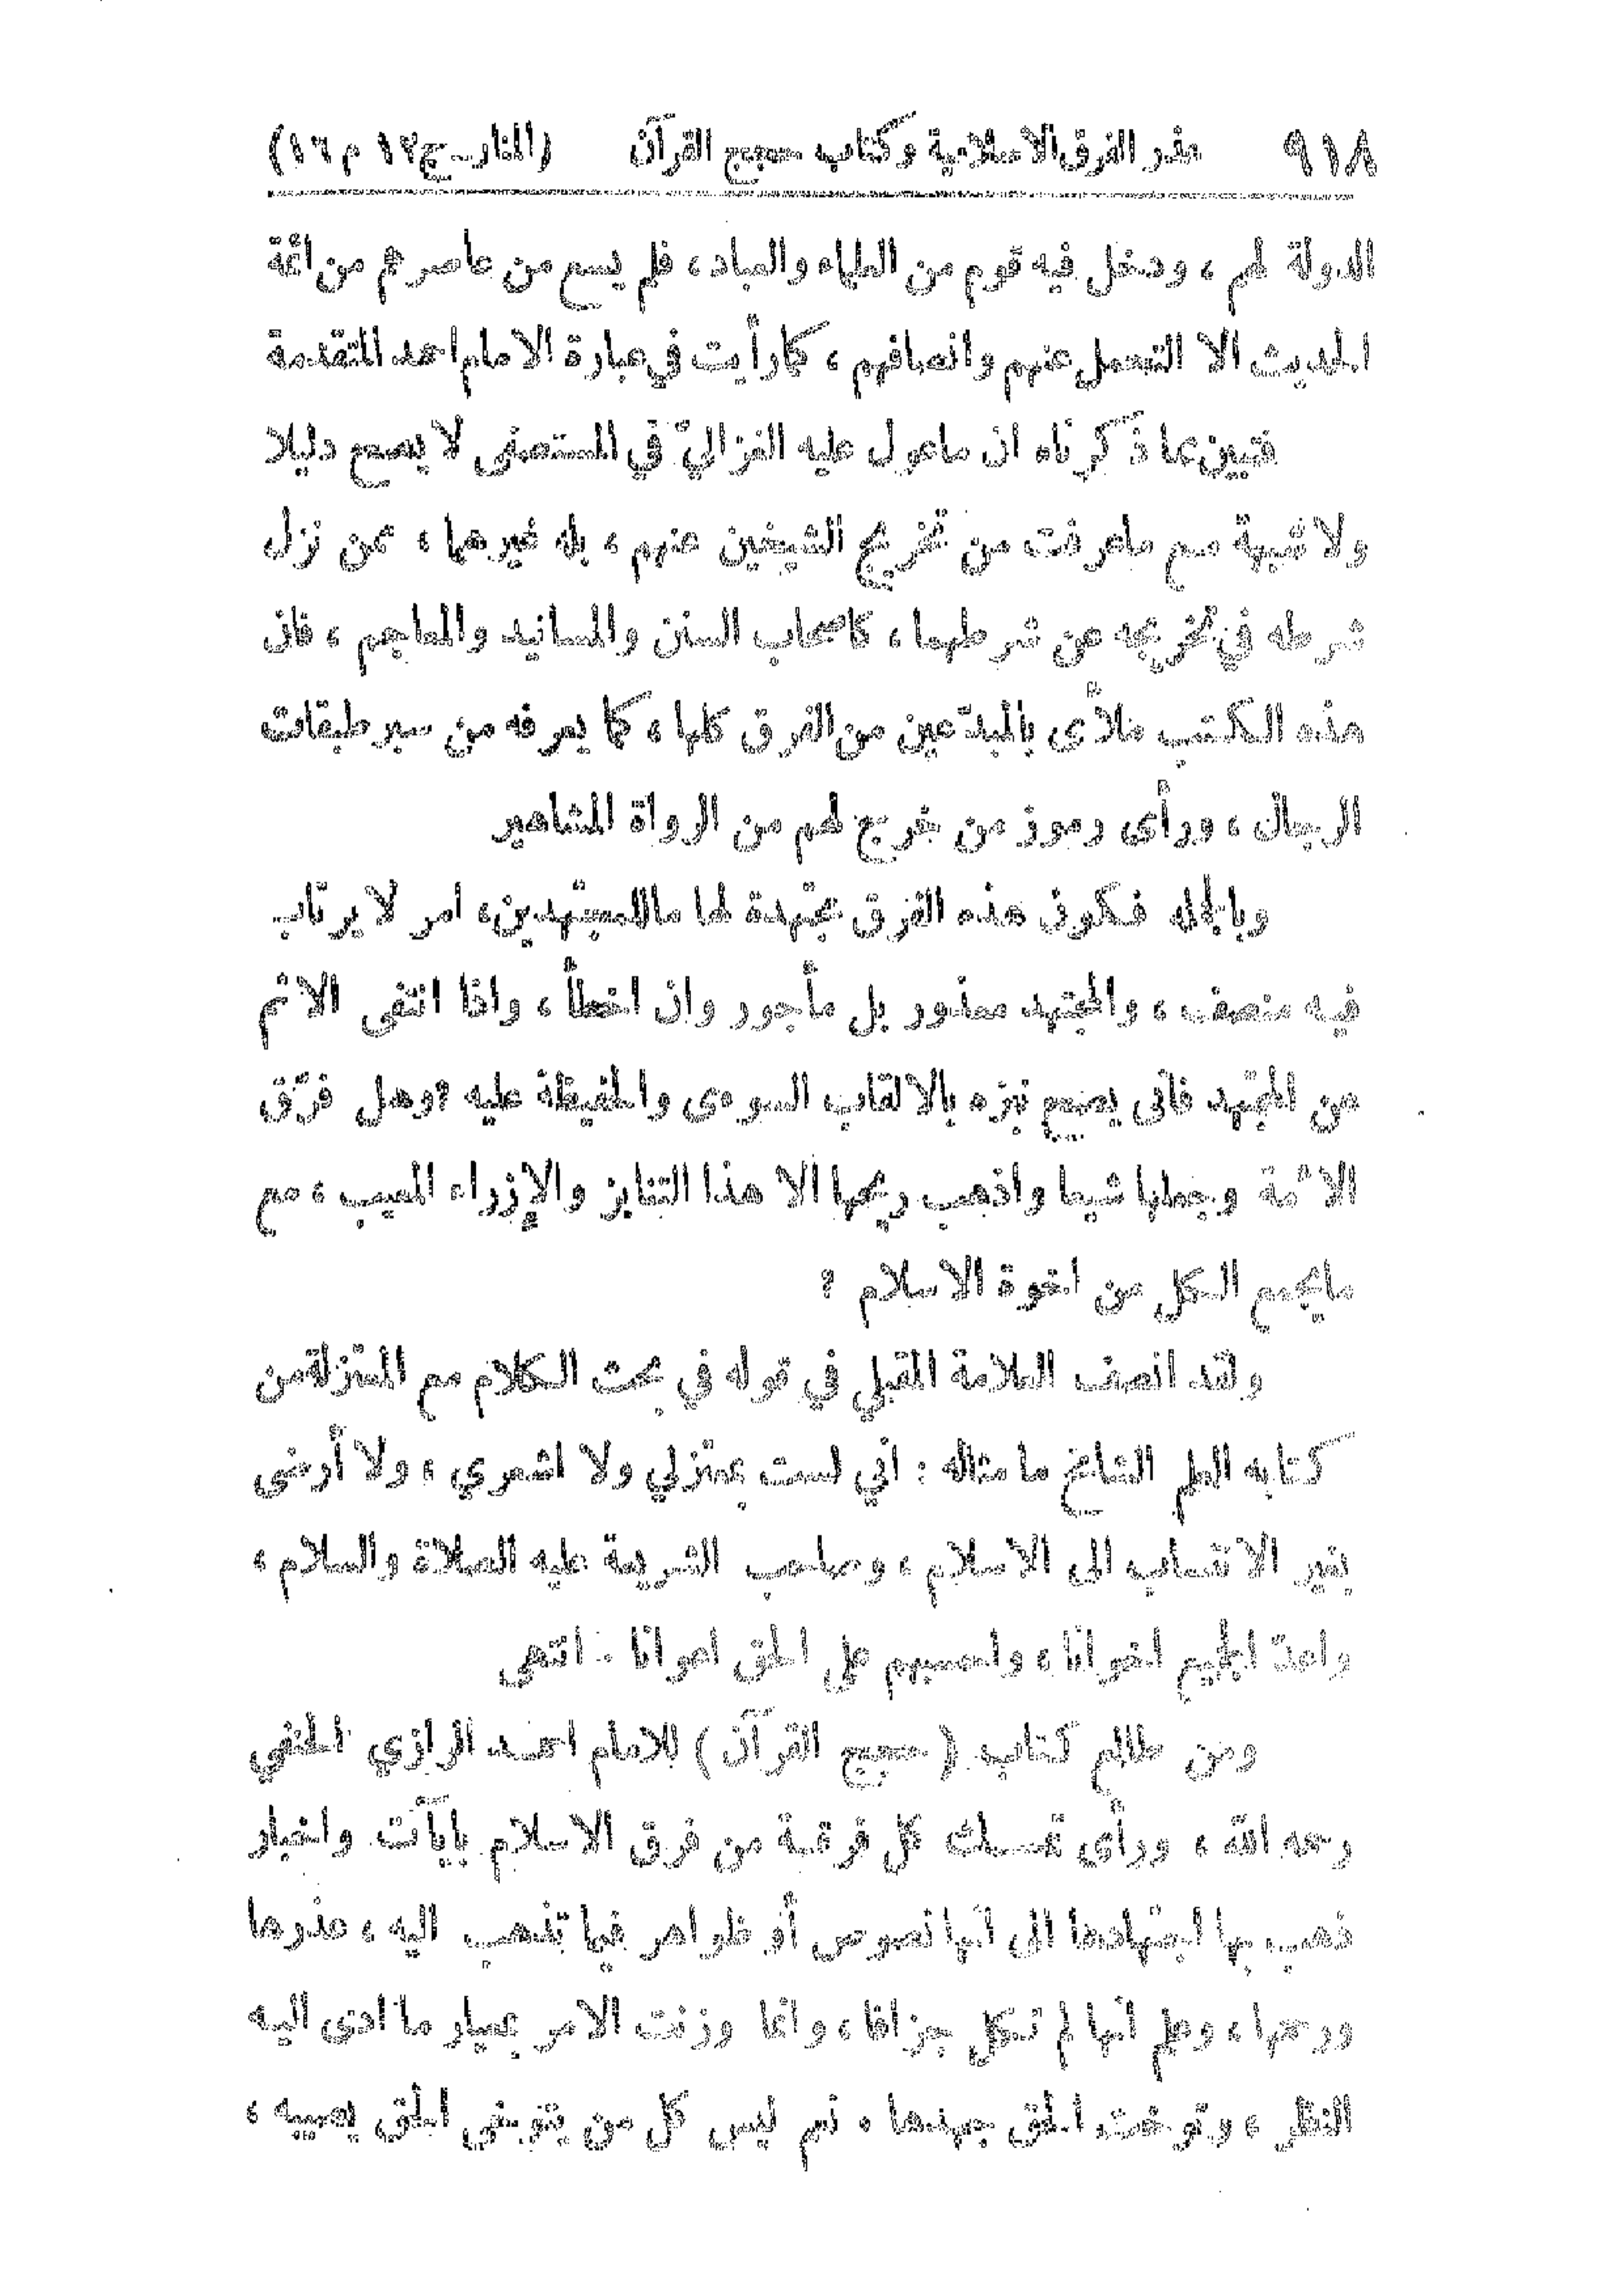 ٩١٨ عذر الفرق الاسلامية وكتاب حجج القرآن (المنار ـ ج١٢ م ١٦)
الدولة لهم ، ودخل فيه قوم من العلماء والعباد ، فلم يسع من عاصرهم من ائمة
الحديث الا التحمل عنهم وانصافهم ، كما رأيت في عبارة الامام احمد المتقدمة
فتبين مما ذكرناه ان ماعول عليه الغزاليّ في المستصفى لا يصح دليلا
ولا شبهة مع ماعرفت من تخريج الشيخين عنهم ، بله غيرهما ، ممن نزل
شرطه في تخريجه عن شرطهما ، كاصحاب السنن والمسانيد والمعاجم ، فان
هذه الكتب ملأى بالمبدّعين من الفرق كلها ، كما يعرفه من سبر طبقات
الرجال ، ورأى رموز من خرج لهم من الرواة المشاهير
وبالجملة فكون هذه الفرق مجتهدة لها ماللمجتهدين، امر لا يرتاب
فيه منصف ، والمجتهد معذور بل مأجور وان اخطأ ، واذا انتفى الاثم
عن المجتهد فانى يصح نبزه بالالقاب السوءى والحفيظة عليه ؟ وهل فرّق
الائمة وجعلها شيعا واذهب ريحها الا هذا التنابز والإزراء المعيب ، مع
مايجمع الكل من اخوة الاسلام ؟
ولقد انصف العلامة المقبلي في قوله في بحث الكلام مع المعتزلة من
كتابه العلم الشامخ ما مثاله : اني لست بمعتزلي ولا اشعري ، ولا أرضى
بغير الانتساب الى الاسلام ، وصاحب الشريعة عليه الصلاة والسلام ،
واعدّ الجميع اخوانا ، واحسبهم على الحق اعوانا . انتهى
ومن طالع كتاب ( حجج القرآن ) للامام احمد الرازي الحنفي
رحمه الله ، ورأى تمسك كل فرقة من فرق الاسلام بآيات واخبار
ذهب بها اجتهادها الى انها نصوص أو ظواهر فيما تذهب اليه ، عذرها
ورحمها ، وعلم انها لم تكل جزافا ، وانما وزنت الامر بمعيار ما ادى اليه
النظر ، وتوخت الحق جهدها ، نعم ليس كل من يتوخى الحق يصيبه ،